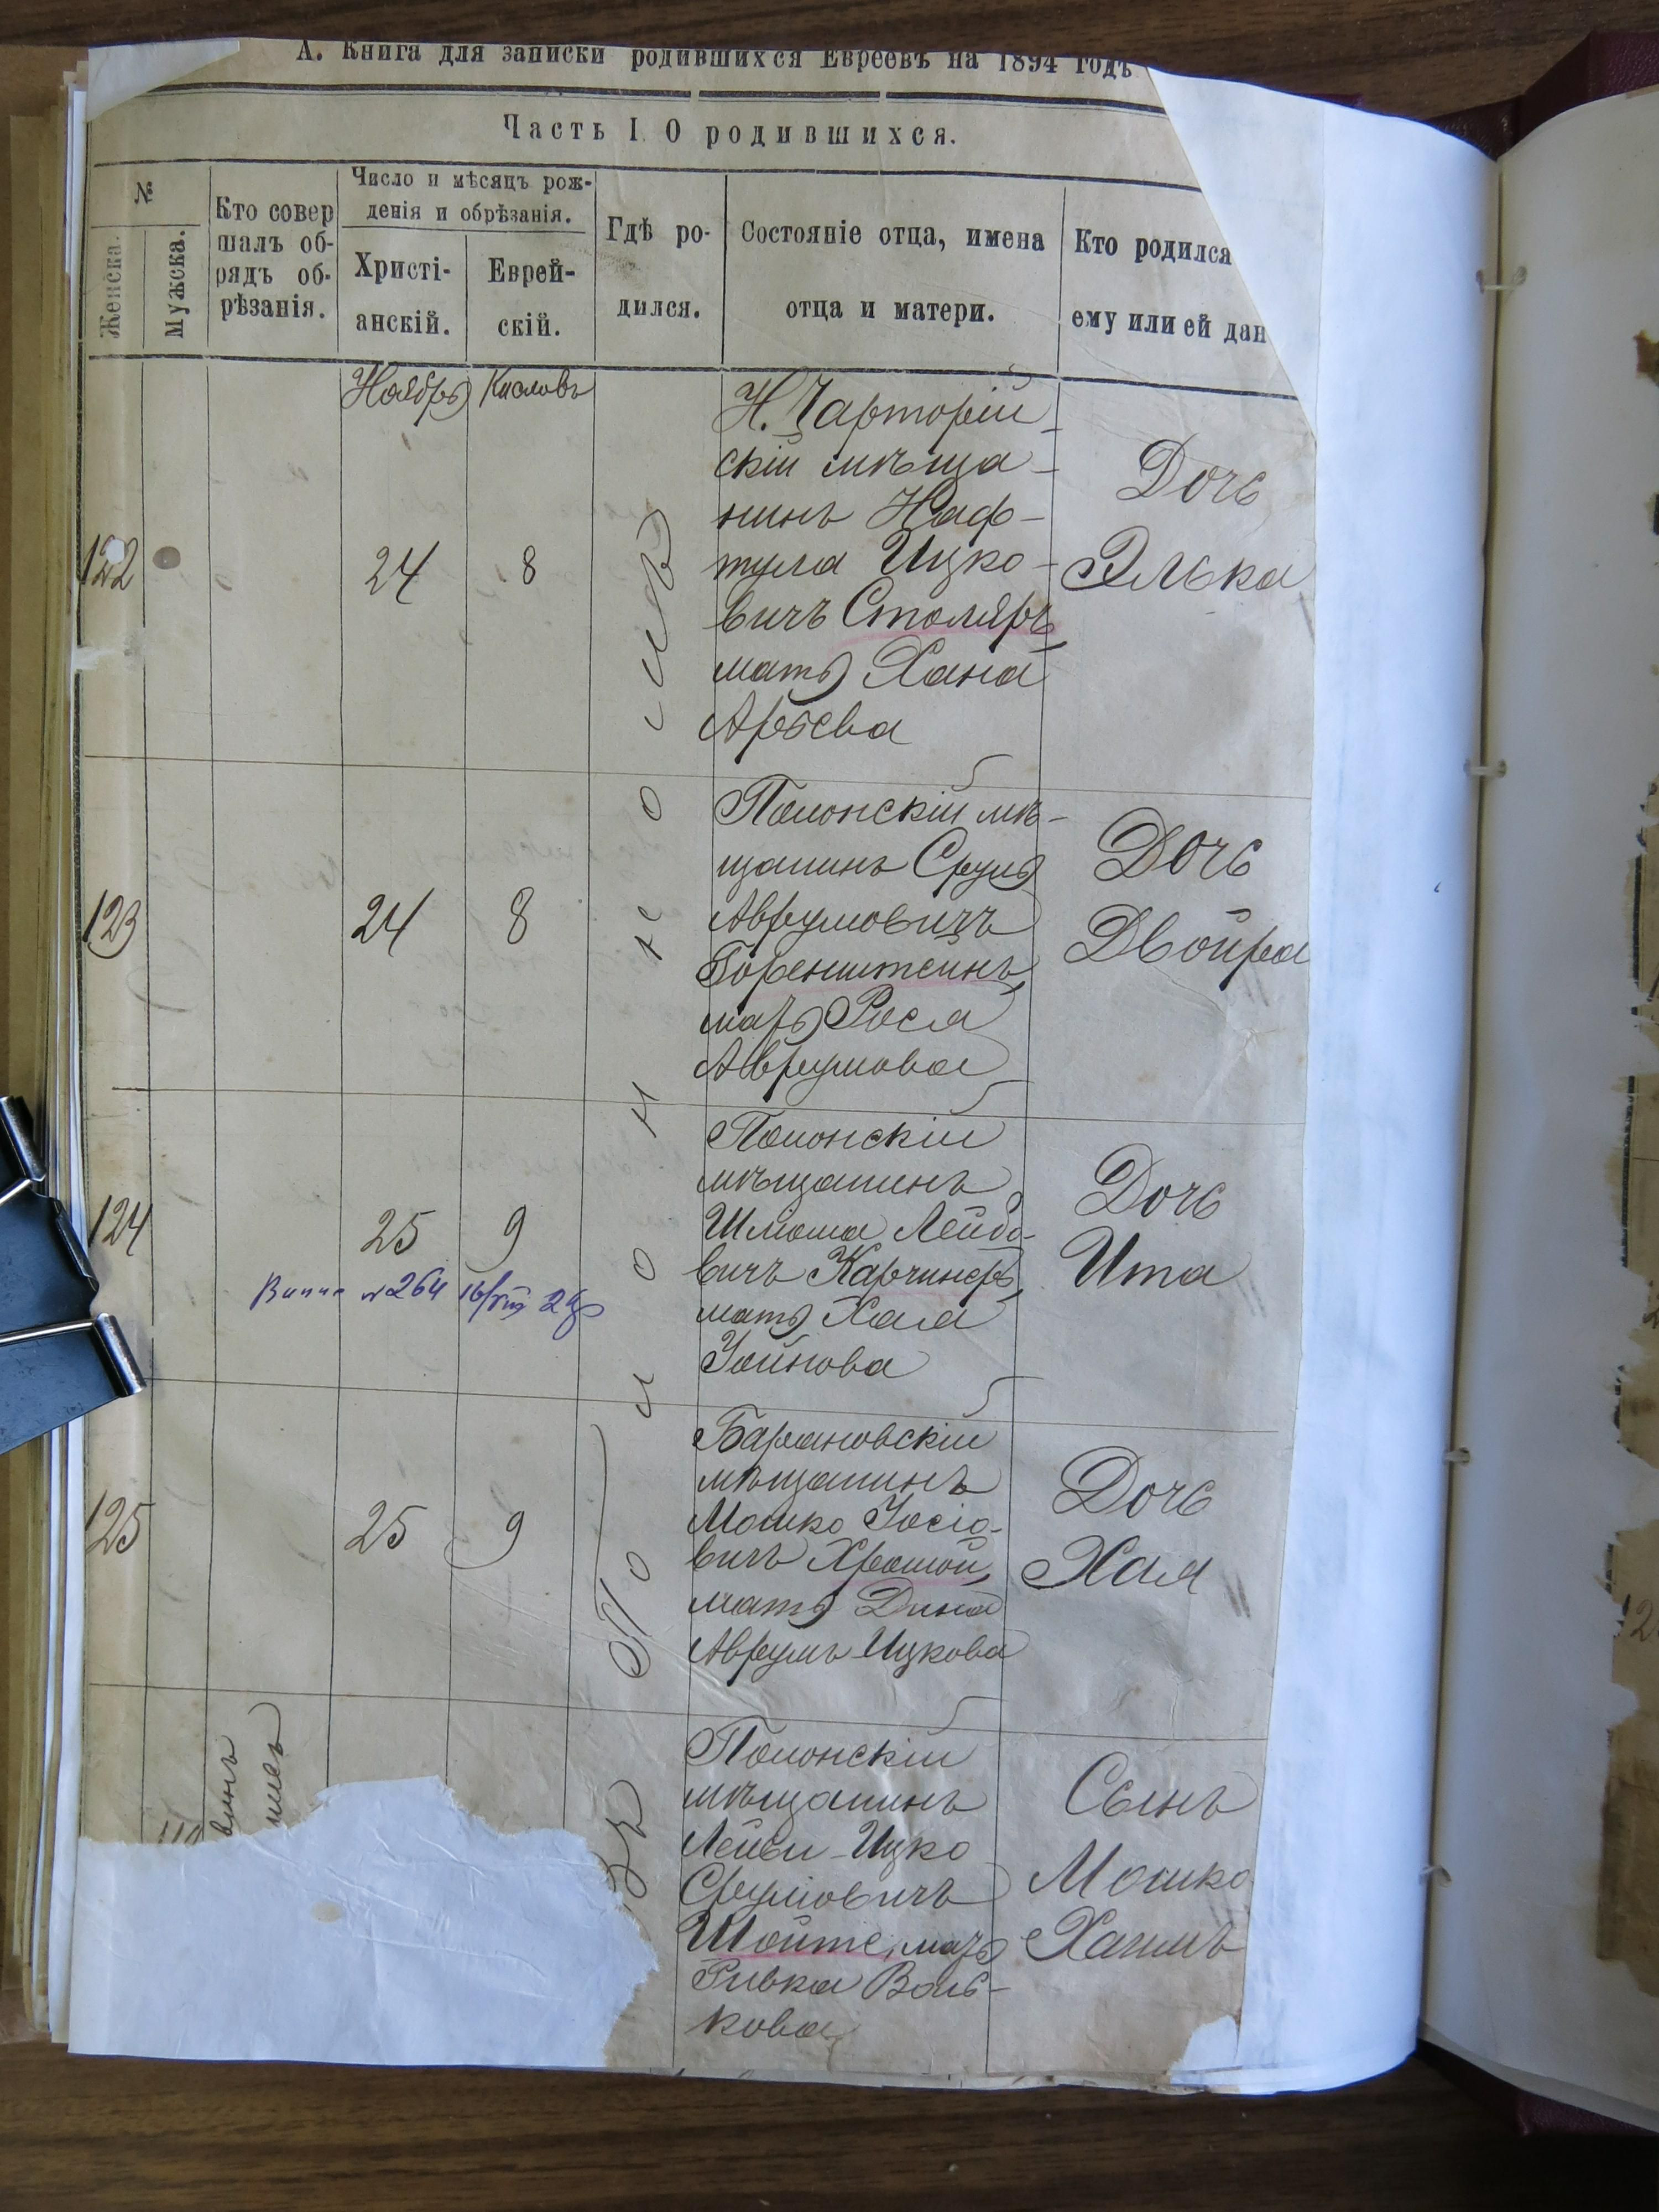 А. Книга для записки родившихся Евреевъ на 1894 годъ
Часть I. О родившихся.
№
Женска.
Мужска.
Кто совер
шалъ об-
рядъ об-
рѣзанія.
Число и мѣсяцъ рож-
денія и обрѣзанія.
Христі-
анскій.
Еврей-
скій.
Гдѣ ро-
дился.
Состояніе отца, имена
отца и матери.
Кто родился
ему или ей дан
Ноябрь
Кислевъ
122
24
8
Н. Чарторій-
скій мѣща-
нинъ Наф-
тула Ицко-
вичъ Столяръ,
мать Хана
Арьева
Дочь
Элька
123
24
8
Полонскій мѣ-
щанинъ Сруль
Аврумовичъ
Горенштейнъ,
мать Рося
Аврумова
Дочь
Двойра
124
25
9
№ 264
Полонскій
мѣщанинъ
Шлома Лейбо-
вичъ Карчинеръ,
мать Хая
Дочь
Ита
125
25
9
Барановскій
мѣщанинъ
Мошко Іосіо-
вичъ Хромой,
мать Дина
Аврумъ-Ицкова
Дочь
Хая
Полонскій
мѣщанинъ
Лейбъ-Ицко
Срулiовичъ
Шойте, мать
Ривка Воль-
кова
Сынъ
Мошко
Хаимъ